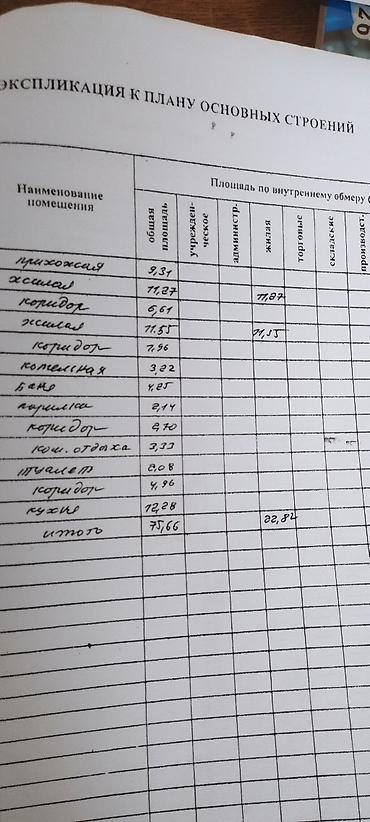 ЭКСПЛИКАЦИЯ К ПЛАНУ ОСНОВНЫХ СТРОЕНИЙ
Наименование помещения
Площадь по внутреннему обмеру
общая площадь
учрежден-ческое
администр.
жилая
торговые
складские
производст.
прихожая 9,31
жилая 11,27 11,27
коридор 6,61
жилая 11.55 11,55
коридор 1,96
котельная 3,22
баня 4,25
парилка 2,14
коридор 2,70
ком. отдыха 3,33
туалет 2,08
коридор 4,96
кухня 12,28
итого 75,66 22,82